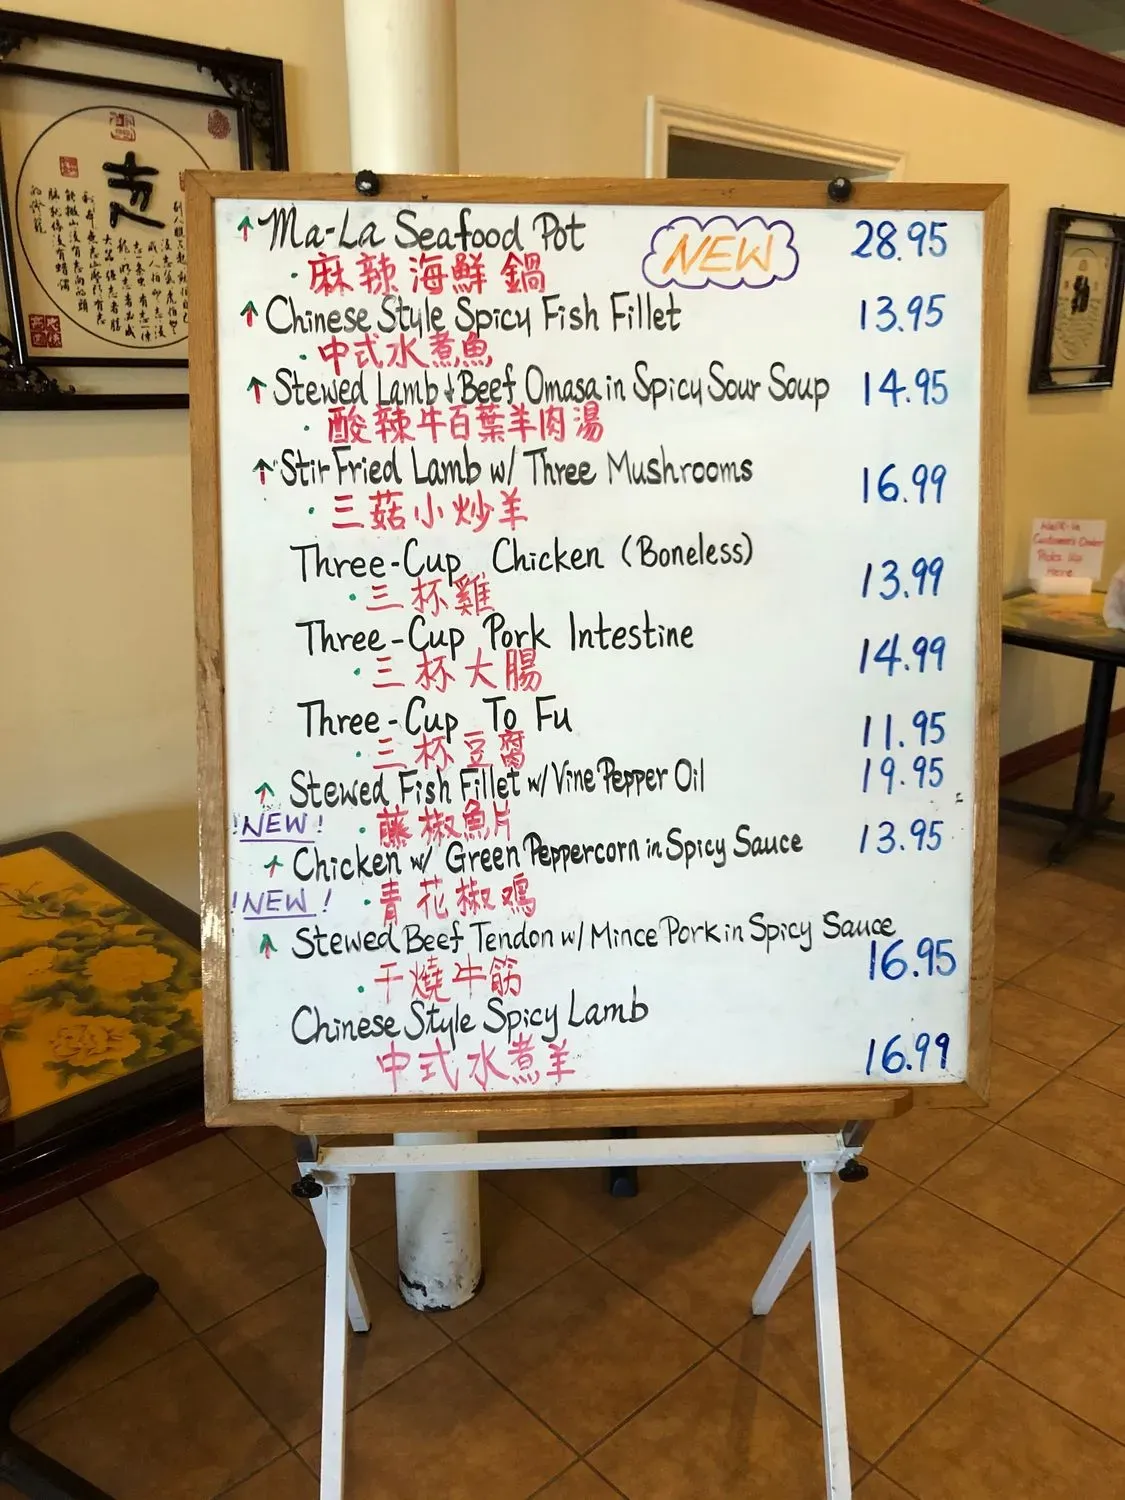 Ma-La Seafood Pot NEW 28.95
· 麻辣海鮮鍋
Chinese Style Spicy Fish Fillet 13.95
· 中式水煮魚
Stewed Lamb & Beef Omasa in Spicy Sour Soup 14.95
· 酸辣牛百葉羊肉湯
Stir Fried Lamb w/ Three Mushrooms 16.99
· 三菇小炒羊
Three-Cup Chicken (Boneless) 13.99
· 三杯雞
Three-Cup Pork Intestine 14.99
· 三杯大腸
Three-Cup To Fu 11.95
· 三杯豆腐
Stewed Fish Fillet w/ Vine Pepper Oil 19.95
!NEW! · 藤椒魚片
Chicken w/ Green Peppercorn in Spicy Sauce 13.95
!NEW! · 青花椒鸡
Stewed Beef Tendon w/ Mince Pork in Spicy Sauce 16.95
· 干燒牛筋
Chinese Style Spicy Lamb 16.99
中式水煮羊
Walk-in
Customers Order
Picks Up
Here